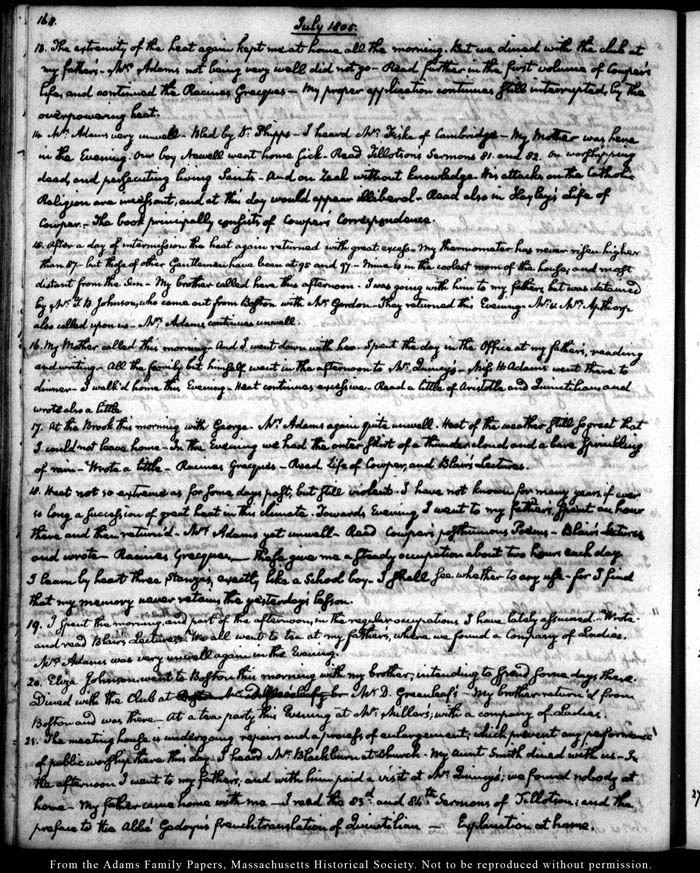 168.
July 1805.
13. The extremity of the heat again kept me at home all the morning. But we dined with the club at
my father's. Mrs. Adams not being very well did not go - Read further in the first volume of Cowper's
Life, and continued the Racines Grecques - My proper application continues still interrupted, by the
overpowering heat.
14. Mrs. Adams very unwell - Bled by Dr. Phipps - I heard Mr. Fiske of Cambridge - My Mother was here
in the Evening. Our boy Newell went home sick. Read Tillotsons Sermons 81. and 82. On worshipping
dead, and persecuting living Saints - And on Zeal without knowledge. His attacks on the Catholic
Religion are incessant, and at this day would appear illiberal - Read also in Hayley's Life of
Cowper. - The book principally consists of Cowper's Correspondence.
15. After a day of intermission the heat again returned with great excess - My thermometer has never risen higher
than 87 - but those of other Gentlemen have been at 95 and 97 - Mine is in the coolest room of the house, and most
distant from the Sun - My brother called here this afternoon. I was going with him to my father's, but was detained
by Mr. T. B. Johnson, who came out from Boston with Mr. Gordon. They returned this Evening. Mr. & Mrs. Apthorp
also called upon us - Mrs. Adams continues unwell.
16. My Mother called this morning. And I went down with her. Spent the day in the Office at my father's, reading
and writing - All the family but himself, went in the afternoon to Mr. Quincy's - Miss H. Adams went there to
dinner - I walk'd home this Evening. Heat continues excessive - Read a little of Aristotle and Quinctilian and
wrote also a little.
17. At the Brook this morning with George. Mrs. Adams again quite unwell. Heat of the weather still so great that
I could not leave home - In the Evening we had the outer skirt of a thunder cloud, and a bare sprinkling
of rain - Wrote a little - Racines Grecques - Read Life of Cowper, and Blair's Lectures.
18. Heat not so extreme as for some days past, but still violent - I have not known for many years if ever
so long a succession of great heat in this climate. Towards Evening I went to my father's, spent an hour
there and then return'd - Mrs. Adams yet unwell - Read Cowper's posthumous Poems - Blair's Lectures
and wrote - Racines Grecques - These give me a steady occupation about two hours each day
I learn by heart three stanzas, exactly like a School boy - I shall see whether to any use - for I find
that my memory never retains the yesterdays lesson.
19. I spent the morning, and part of the afternoon, in the regular occupations I have lately assumed - Wrote
and read Blair's Lectures. We all went to tea at my father's, where we found a Company of Ladies.
Mrs. Adams was very unwell again in the Evening.
20. Eliza Johnson went to Boston this morning with my brother; intending to spend some days there.
Dined with the Club at Mr. D. Greenleaf's - My brother return'd from
Boston and was there - At a tea party this Evening at Mr. Miller's; with a company of Ladies.
21. The meeting house is undergoing repairs and a process of enlargement, which prevent any performance
of public worship there this day. I heard Mr. Blackburn at Church. My aunt Smith dined with us - In
the afternoon I went to my father's, and with him paid a visit at Mr. Quincy's; we found nobody at
home - My father came home with me - I read the 83d. and 84th. Sermons of Tillotson; and the
preface to the Abbé Gedoyn's french translation of Quinctilian - Explanation at home.
From the Adams Family Papers, Massachusetts Historical Society. Not to be reproduced without permission.